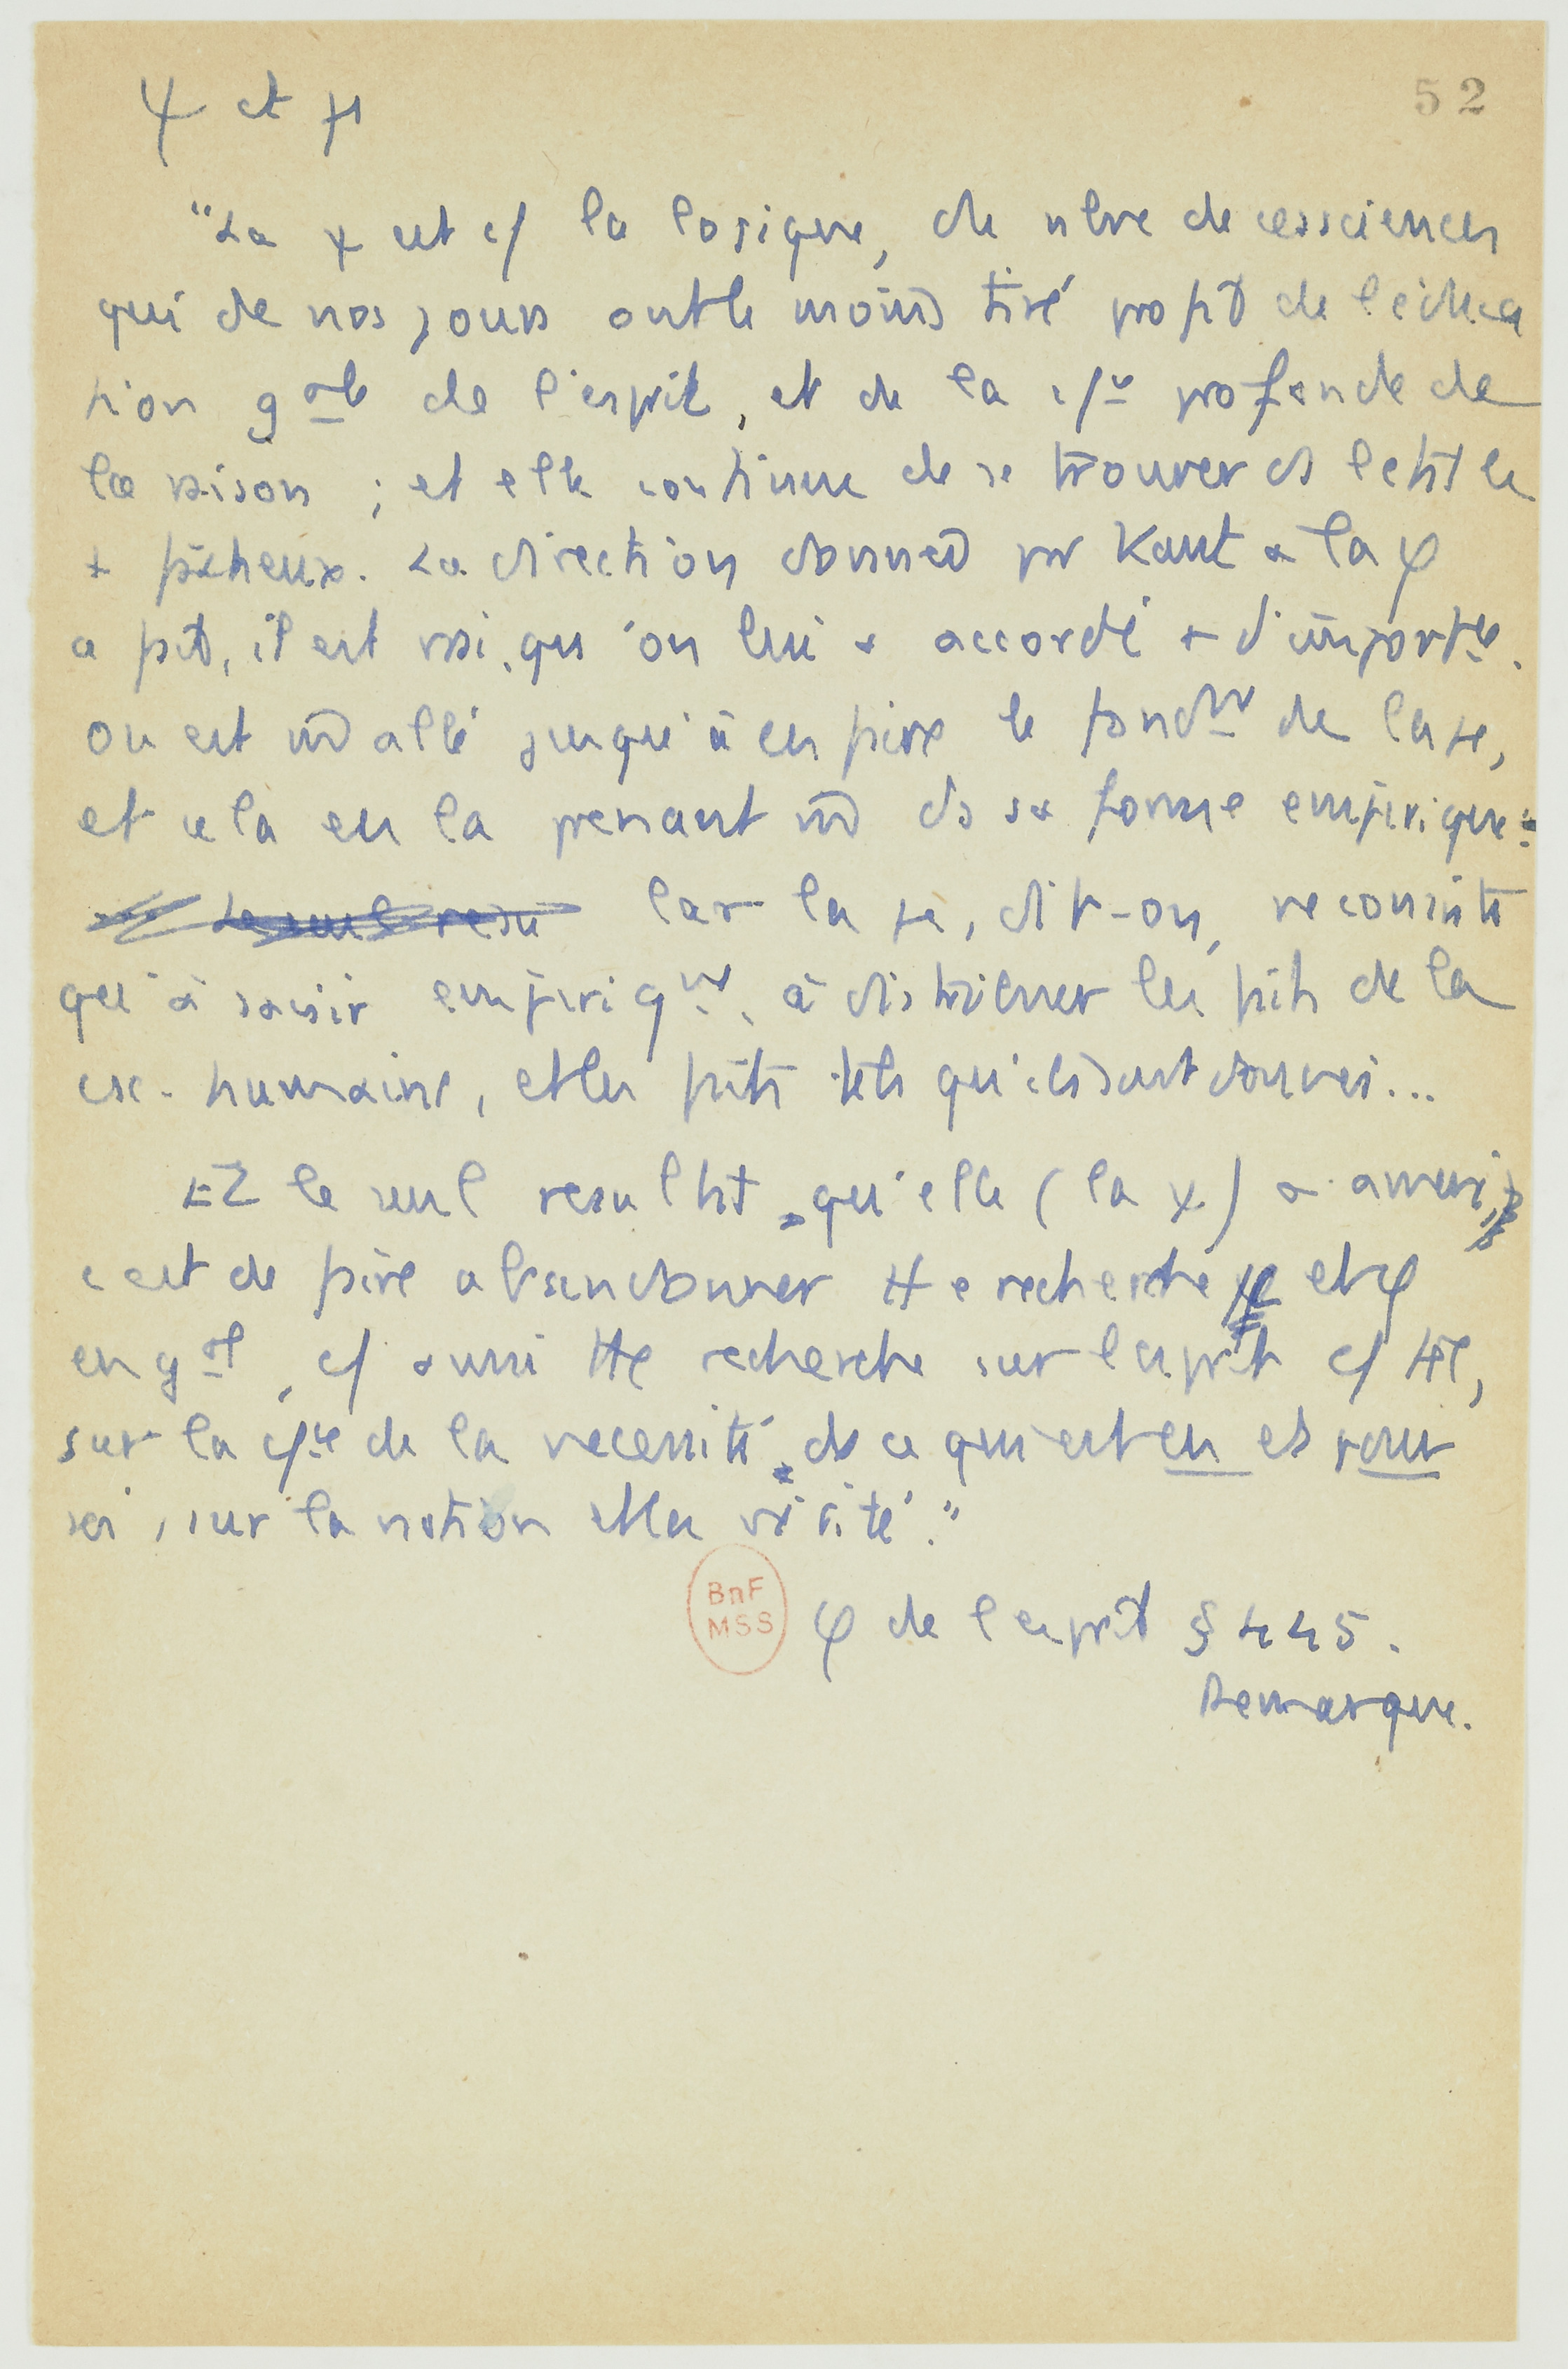 ψ et μ
52
"La ψ est c/ la logique, du nbre de ces sciences
qui de nos jours ont le moins tiré profit de l'éduca
tion gale de l'esprit, et de la c/ profonde de
la raison ; et elle continue de se trouver ds l'état le
+ fâcheux. La direction donnée par Kant à la φ
a fait, il est vrai, qu'on lui a accordé + d'importce.
On est m̂ allé jusqu'à en faire le fondmt de la μ,
et cela en la prenant m̂ ds sa forme empirique.
Le seul resu Car la μ, dit-on, ne consiste
qu'à saisir empiriqmt, à distribuer les faits de la
csc. humaine, et les faits tels qu'ils sont donnés...
Et le seul resultat qu'elle (la ψ) a amené,
c'est de faire abandonner tte recherche μ et φ
en gal, c/ aussi tte recherche sur l'esprit c/ tel,
sur la c/ de la necessité de ce qui est en et pour
soi, sur la notion et la vérité."
BnF
MSS
φ de l'esprit § 445.
Remarque.